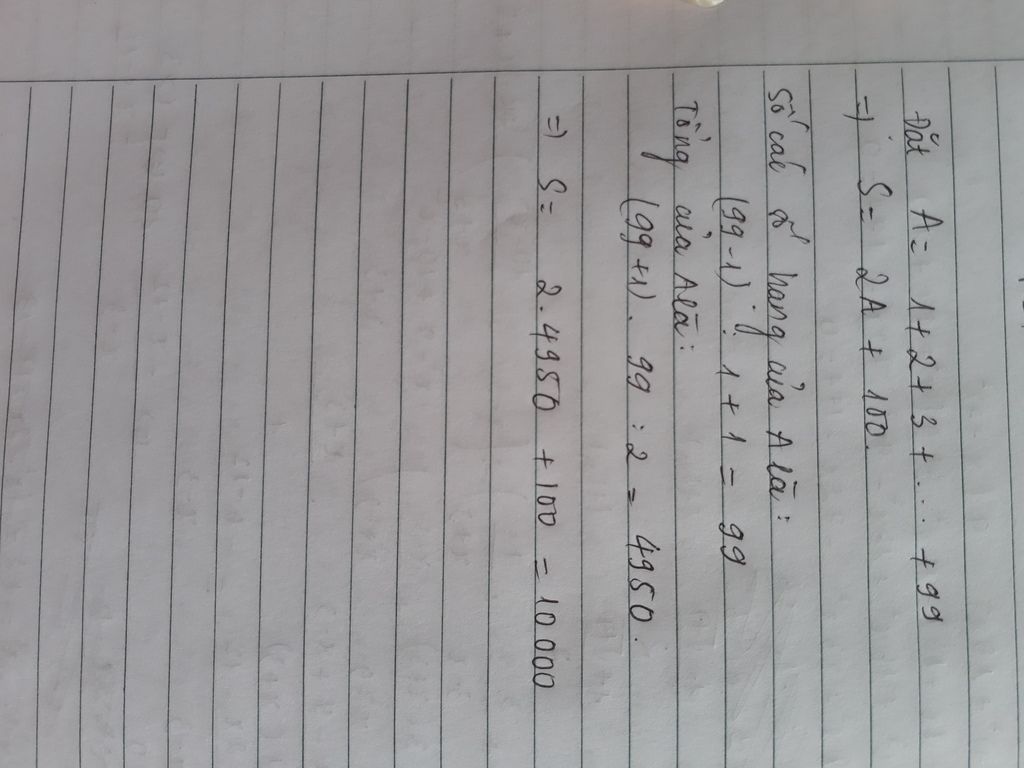 Đặt A = 1 + 2 + 3 + ... + 99
=) S = 2A + 100.
Số các số hạng của A là:
(99 - 1) : 1 + 1 = 99
Tổng của A là:
(99 + 1) . 99 : 2 = 4950.
=) S = 2 . 4950 + 100 = 10 000